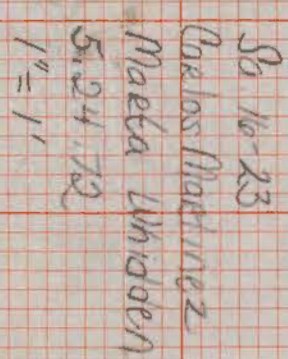 So 16-23
Carlos Martinez
Marla Whidden
5.24.72
1" = 1'